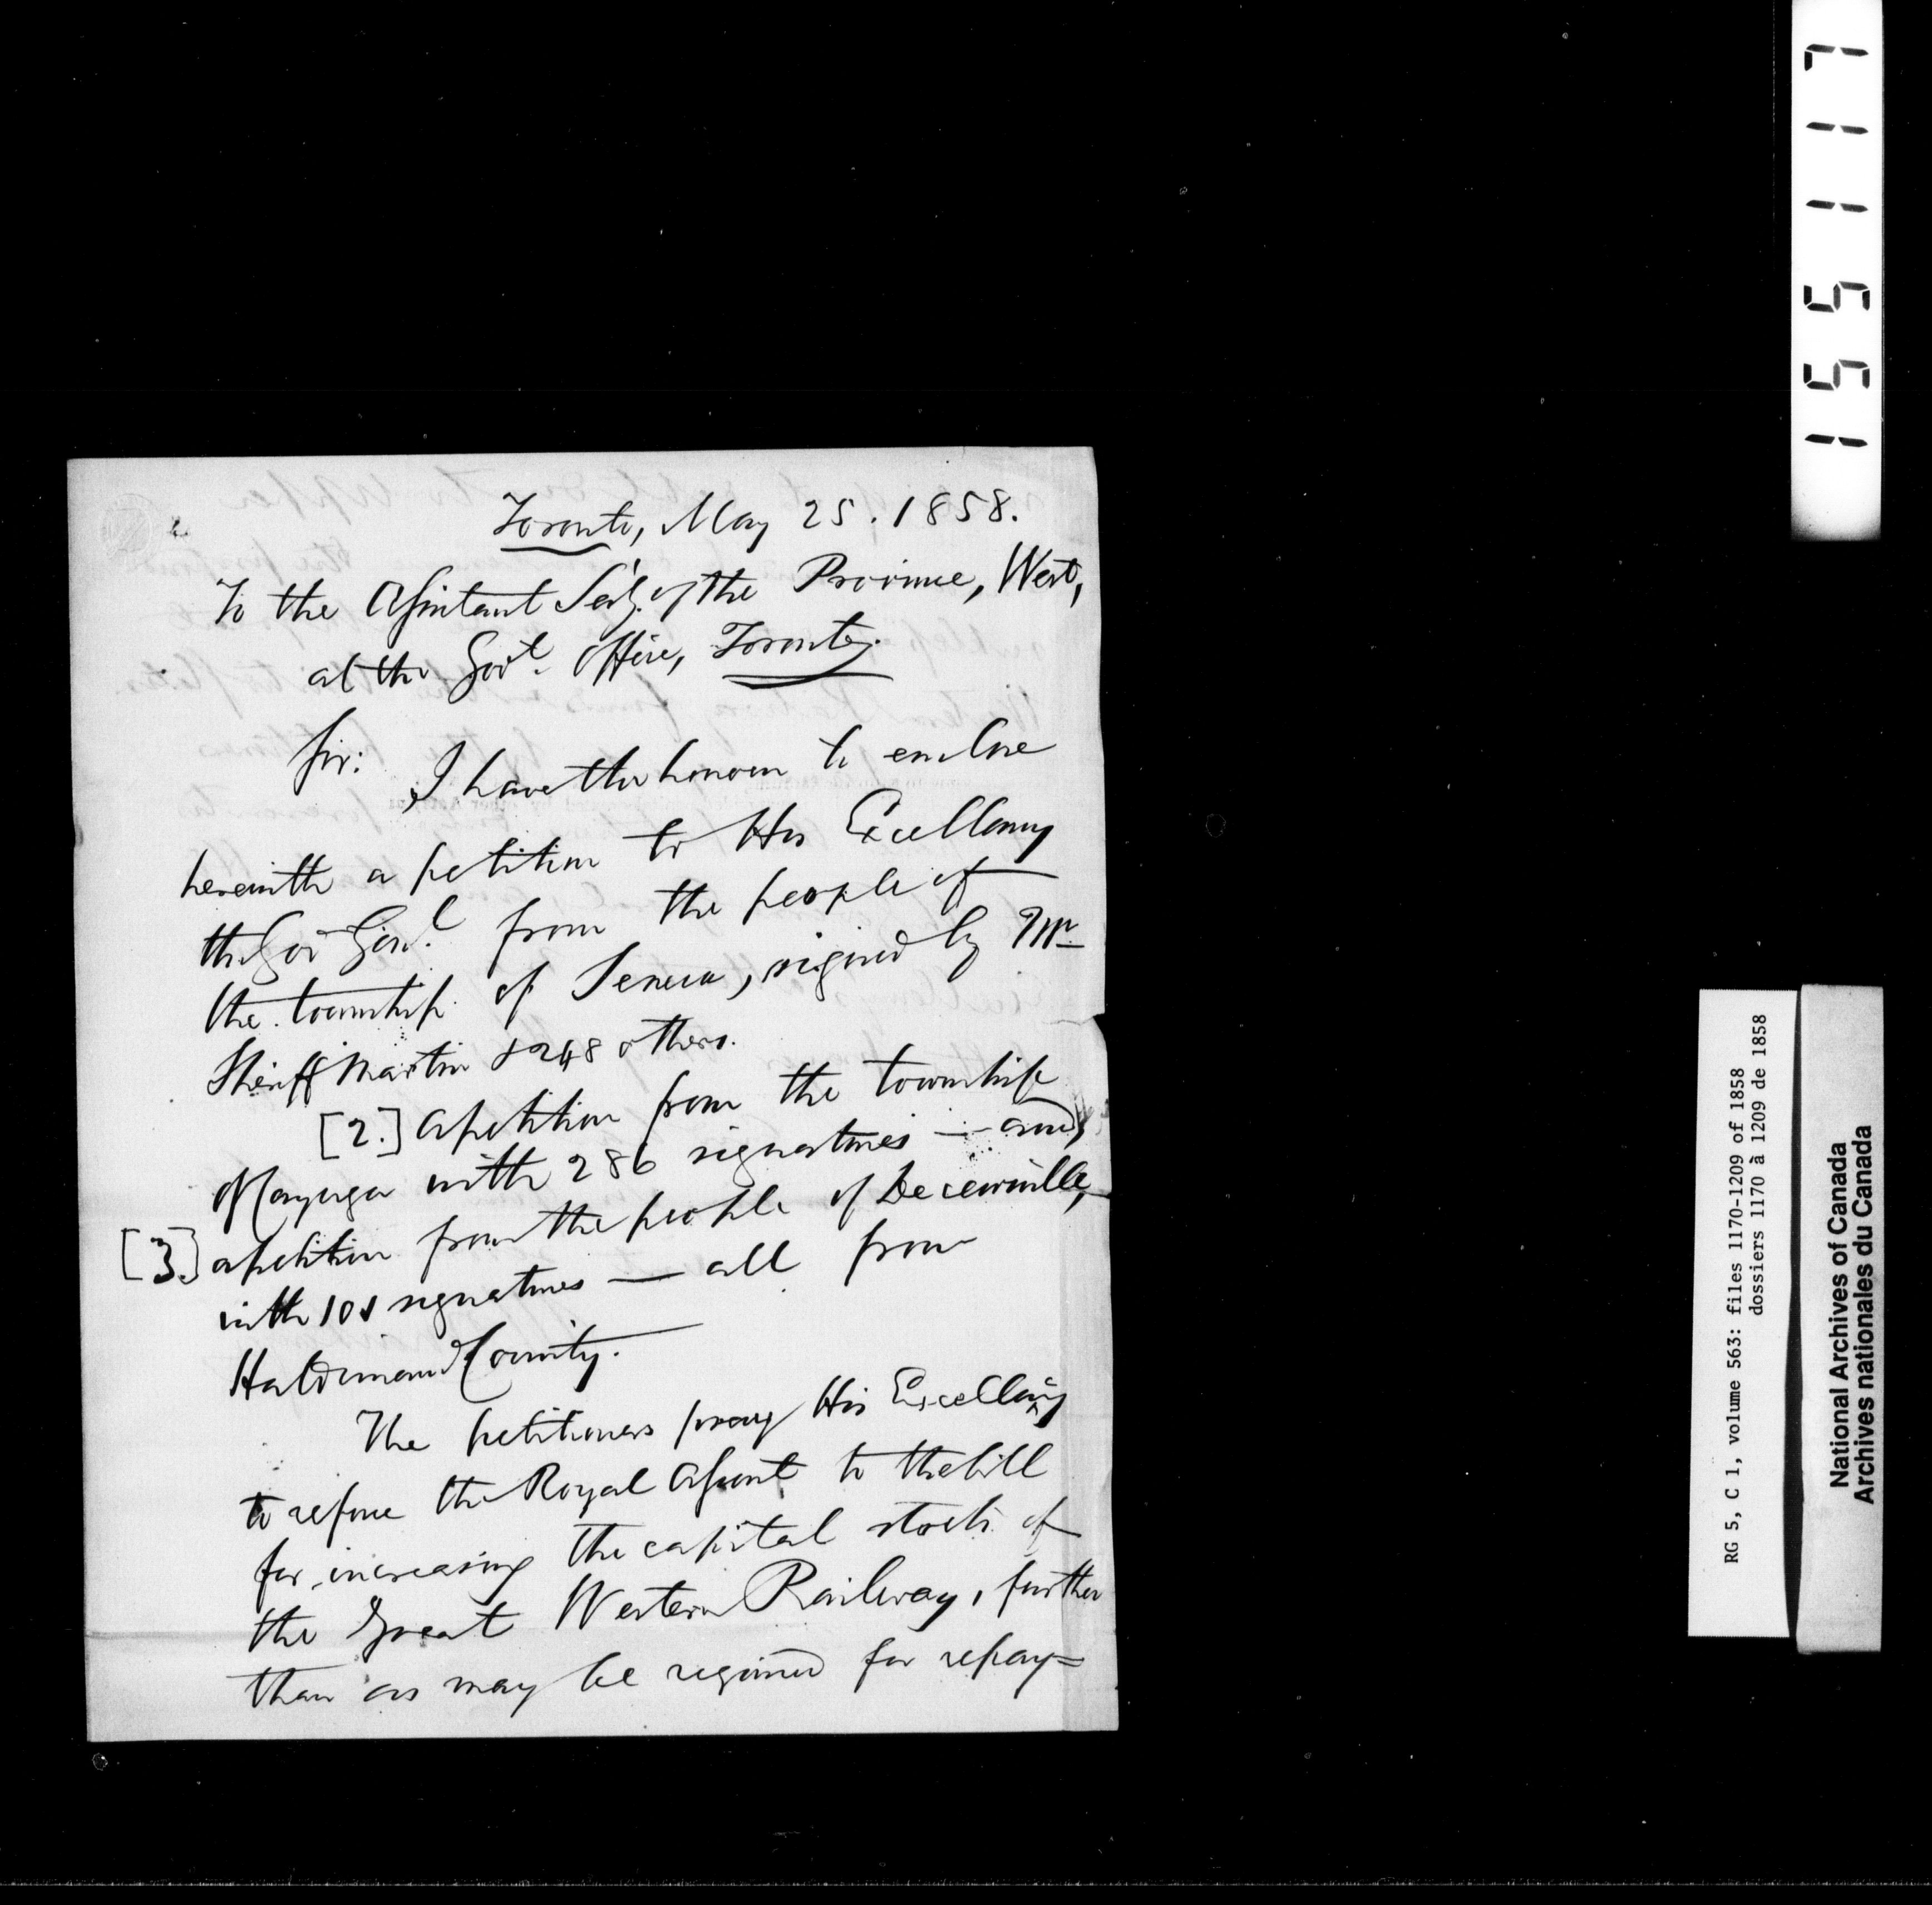 Toronto, May 25. 1858.
To the Assistant Sec'y. of the Province, West,
at the Gov't. Office, Toronto.
Sir: I have the honour to enclose
herewith a petition to His Excellency
the Gov Genl. from the people of
the township of Seneca, signed by Mr
Sheriff Martin & 248 others.
[2.] A petition from the township
of Cayuga with 286 signatures — and
[3.] a petition from the people of Decewville,
with 101 signatures — all from
Haldimand County.
The petitioners pray His Excellency
to refuse the Royal Assent to the bill
for increasing the capital stock of
the Great Western Railway, further
than as may be required for repay=
155117
RG 5, C 1, volume 563: files 1170-1209 of 1858
dossiers 1170 à 1209 de 1858
National Archives of Canada
Archives nationales du Canada